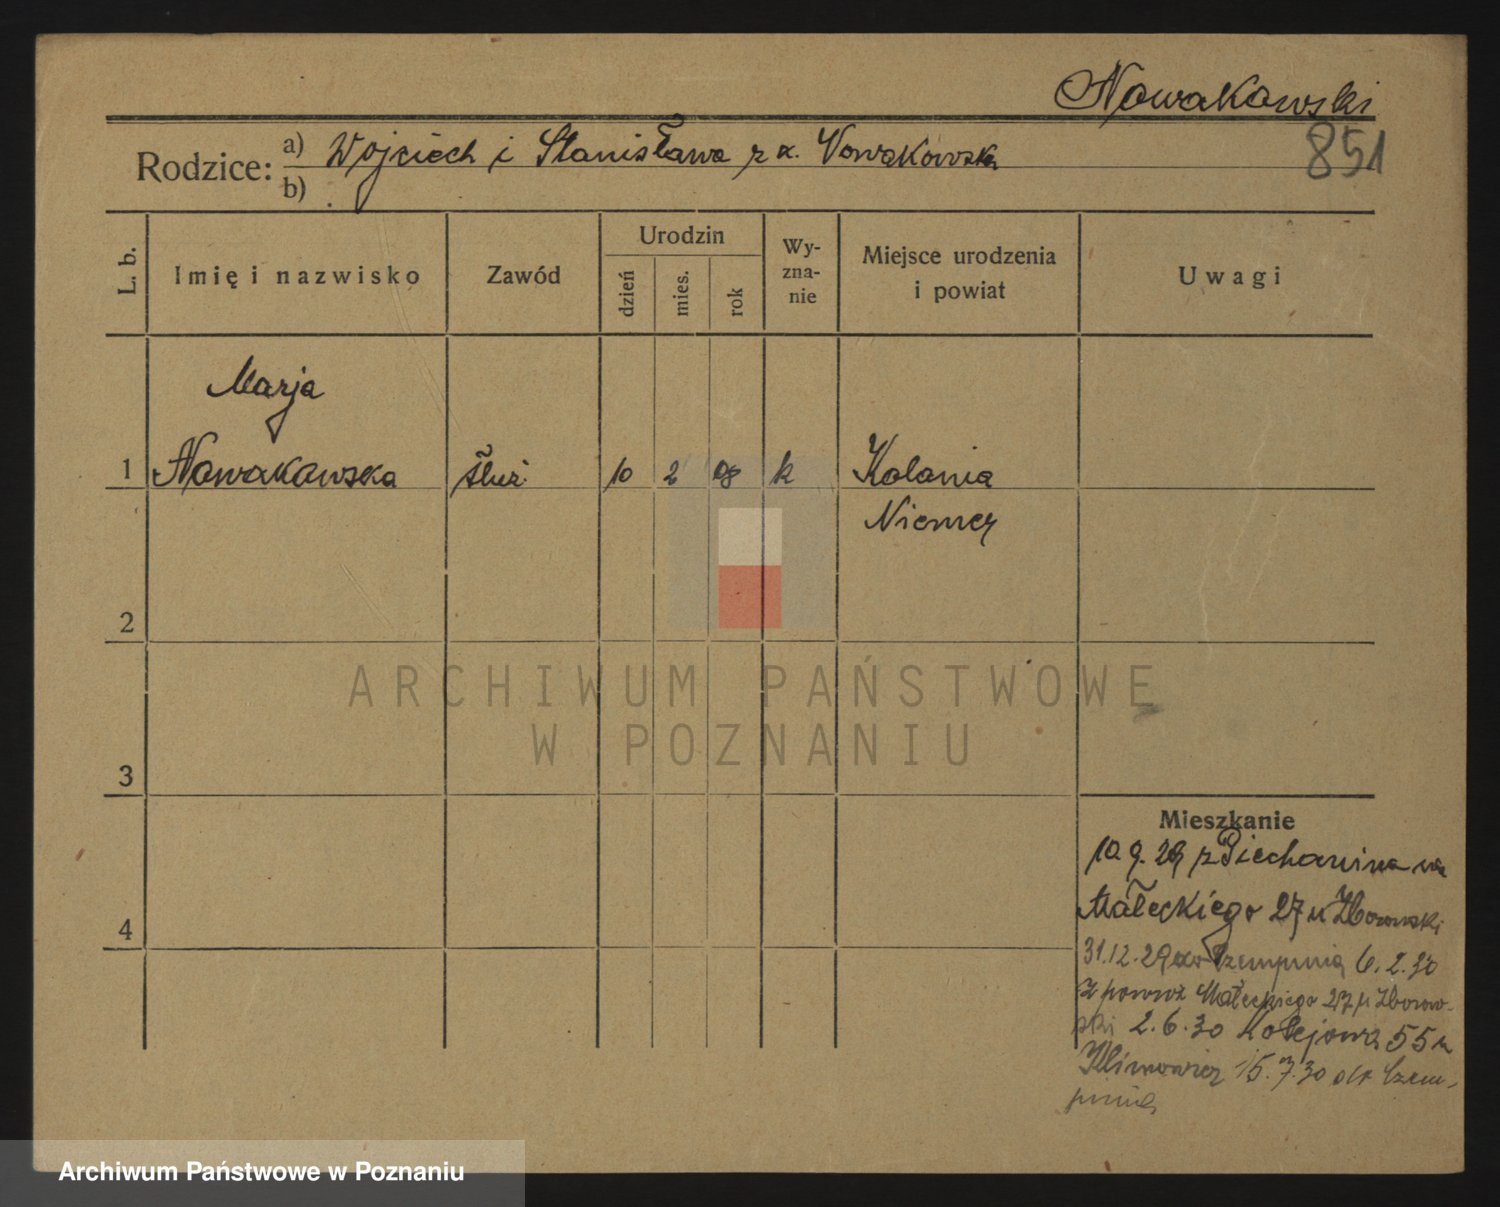 Nowakowski
851
Rodzice: a) Wojciech i Stanisława z d. Nowakowska
b)
L. b.
Imię i nazwisko
Zawód
Urodzin
dzień
mies.
rok
Wy-
zna-
nie
Miejsce urodzenia
i powiat
Uwagi
Marja
1 Nowakowska służ. 10 2 08 k Kolonia
Niemcy
2
ARCHIWUM PAŃSTWOWE
W POZNANIU
3
Mieszkanie
10.9.29 z Piechanina na
Małeckiego 27 u Zborowski
4
31.12.29 do Czempinia 6.2.30
z powrot Małeckiego 27 u Zborow-
ski 2.6.30 Kolejowa 55 u
Klimowicz 15.7.30 do Czem-
pinia
Archiwum Państwowe w Poznaniu